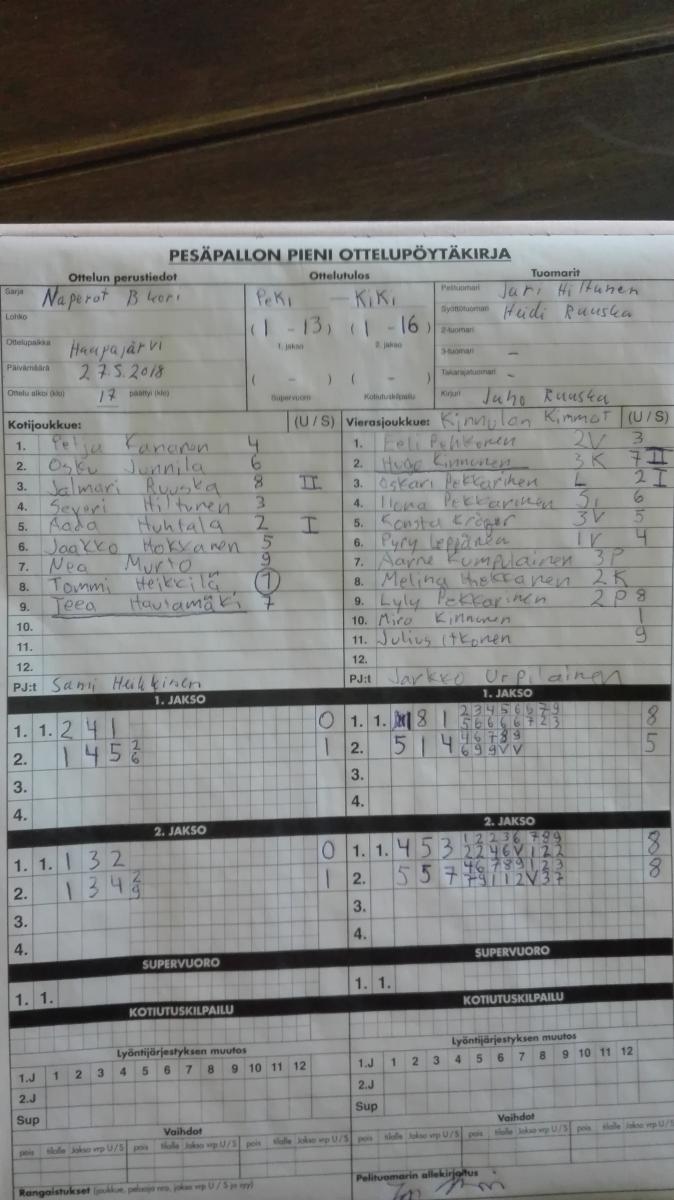 PESÄPALLON PIENI OTTELUPÖYTÄKIRJA
Ottelun perustiedot Ottelutulos Tuomarit
Sarja Naperot B kori PeKi — KiKi Pelituomari Jari Hiltunen
Lohko (1 - 13) (1 - 16) Syöttötuomari Heidi Ruuska
1. jakso 2. jakso 2-tuomari
Ottelupaikka Haapajärvi 3-tuomari -
Päivämäärä 27.5.2018 ( - ) ( - ) Takarajatuomari -
Ottelu alkoi (klo) 17 päättyi (klo) Supervuoro Kotiutuskilpailu Kirjuri Juho Ruuska
Kotijoukkue: (U / S) Vierasjoukkue: Kinnulan Kimmat (U / S)
1. Petja Kananen 4 1. Eeli Pohkonen 2V 3
2. Osku Junnila 6 2. Hugo Kinnunen 3K 7 II
3. Jalmari Ruuska 8 II 3. Oskari Pekkarinen L 2 I
4. Severi Hiltunen 3 4. Ilona Pekkarinen Si 6
5. Aada Huhtala 2 I 5. Konsta Kröger 3V 5
6. Jaakko Hokkanen 5 6. Pyry Leppänen 1V 4
7. Nea Murto 9 7. Aarne Kumpulainen 3P
8. Tommi Heikkilä 1 8. Melina Hokkanen 2K
9. Teea Hautamäki 7 9. Lyly Pekkarinen 2P 8
10. 10. Miro Kinnunen 1
11. 11. Julius Itkonen 9
12. 12.
PJ:t Sami Heikkinen PJ:t Jarkko Urpilainen
1. JAKSO 1. JAKSO
1. 1. 2 4 1 0 1. 1. 8 1 2 3 4 5 6 6 7 9 8
5 6 6 6 6 7 2 3
2. 1 4 5 2 6 1 2. 5 1 4 4 6 7 8 9 5
6 9 9 V V
3. 3.
4. 4.
2. JAKSO 2. JAKSO
1. 1. 1 3 2 0 1. 1. 4 5 3 1 2 2 3 6 7 8 9 8
2 2 4 6 V 1 2 2
2. 1 3 4 2 9 1 2. 5 5 7 4 6 7 8 9 1 2 3 8
7 9 1 1 2 V 3 7
3. 3.
4. 4.
SUPERVUORO SUPERVUORO
1. 1. 1. 1.
KOTIUTUSKILPAILU KOTIUTUSKILPAILU
Lyöntijärjestyksen muutos Lyöntijärjestyksen muutos
1.J 1 2 3 4 5 6 7 8 9 10 11 12 1.J 1 2 3 4 5 6 7 8 9 10 11 12
2.J 2.J
Sup Sup
Vaihdot Vaihdot
pois tilalle Jakso vrp U / S pois tilalle Jakso vrp U / S pois tilalle Jakso vrp U / S pois tilalle Jakso vrp U / S pois tilalle Jakso vrp U / S pois tilalle Jakso vrp U / S
Rangaistukset (joukkue, pelaaja nro, jakso vrp U / S ja syy) Pelituomarin allekirjoitus